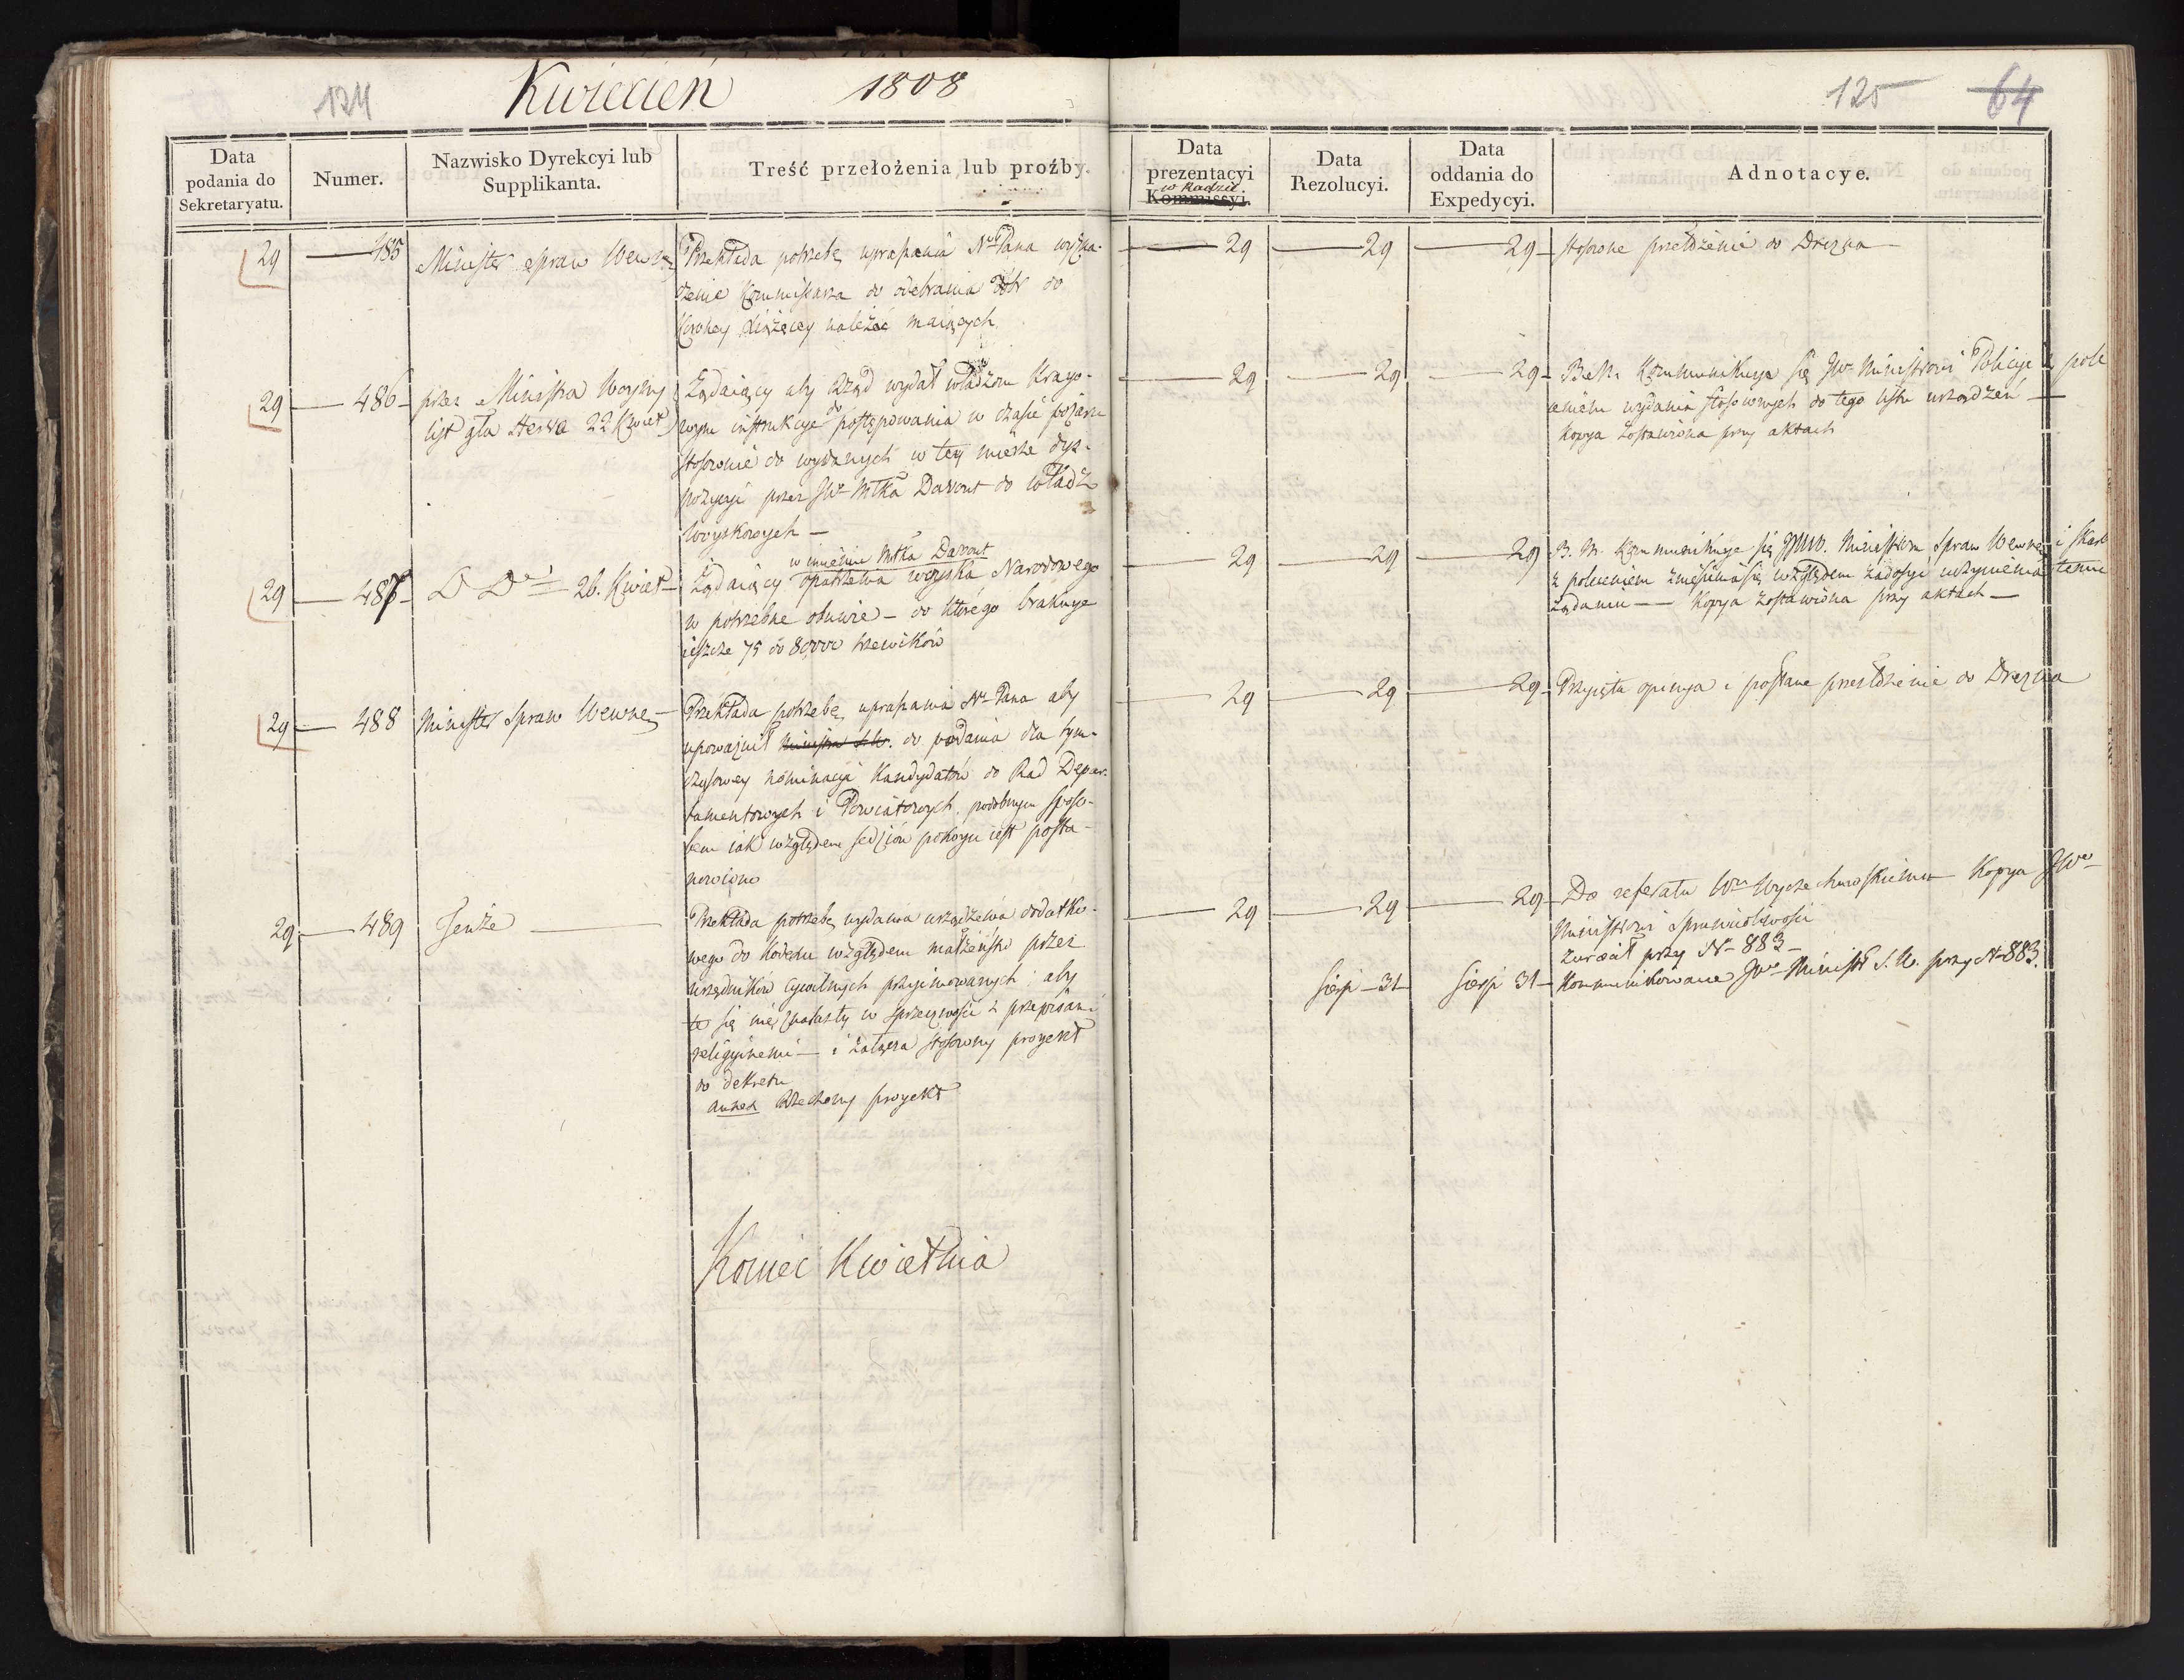 124
Kwiecień 1808
125
64
Data podania do Sekretaryatu.
Numer.
Nazwisko Dyrekcyi lub Supplikanta.
Treść przełożenia lub proźby.
Data prezentacyi w Radzie. Kommissyi.
Data Rezolucyi.
Data oddania do Expedycyi.
Adnotacye.
29 — 485
Minister spraw Wewnę
Przekłada potrzebę uprаszania Nº Pana wyzna-
czenie Kommissarza do odebrania dóbr do
Korony Xiążęcey należeć maiących
29 29 29
stosowne przełożenie do Drezna
29 — 486
przez Ministra Woyny
list Gła Hersa 22 Kwiet
Żądaiący aby Rząd wydał władzom Krayo-
wym instrukcye do postępowania w czasie pożaru
stosownie do wydanych w tey mierze dys-
pozycyi przez JW Młka Davout do władz
Woyskowych —
29 29 29
R. M. Kommunikuye się JW Ministrowi Policyi z pole
ceniem wydania stosownych do tego listu urządzeń —
Kopya zostawiona przy aktach
29 — 487
D Do 26. Kwiet
w imieniu Młka Davout
Żądaiący opatrzenia woyska Narodowego
w potrzebne obuwie — do którego brakuye
ieszcze 75 do 80,000 trzewików
29 29 29
R. M. Kommunikuye się JJWW. Ministrom Spraw Wewnę i Skarb
z poleceniem zniesienia się względem zadosyć uczynienia temu
żądaniu — Kopya zostawiona przy aktach —
29 — 488
Minister Spraw Wewnę
Przekłada potrzebę upraszania Nº Pana aby
upoważnił Ministra S.W. do podania dla tym-
czasowey nominacyi Kandydatów do Rad Depar-
tamentowych i Powiatowych, podobnym sposo-
bem iak względem sędziów pokoyu iest posta-
nowiono
29 29 29
Przyięta opinya i posłane przełożenie do Drezna
29 — 489
Tenże —
Przekłada potrzebę wydania urządzenia dodatko-
wego do Kodexu względem małżeństw przez
urzędników cywilnych przyimowanych; aby
te się nie znalazły w sprzeczności z przepisami
religiynemi — i załącza stosowny proyekt
do dekretu
annex Rzeczony proyekt
29 29 29
Do referatu Wu Wyczechowskiemu Kopya JWu
Ministrowi Sprawiedliwości
zwrócił przy Nº 883 —
Sierp — 31 Sierp 31
Kommunikowane JWu Ministr S. W. przy Nº 883.
Koniec Kwietnia